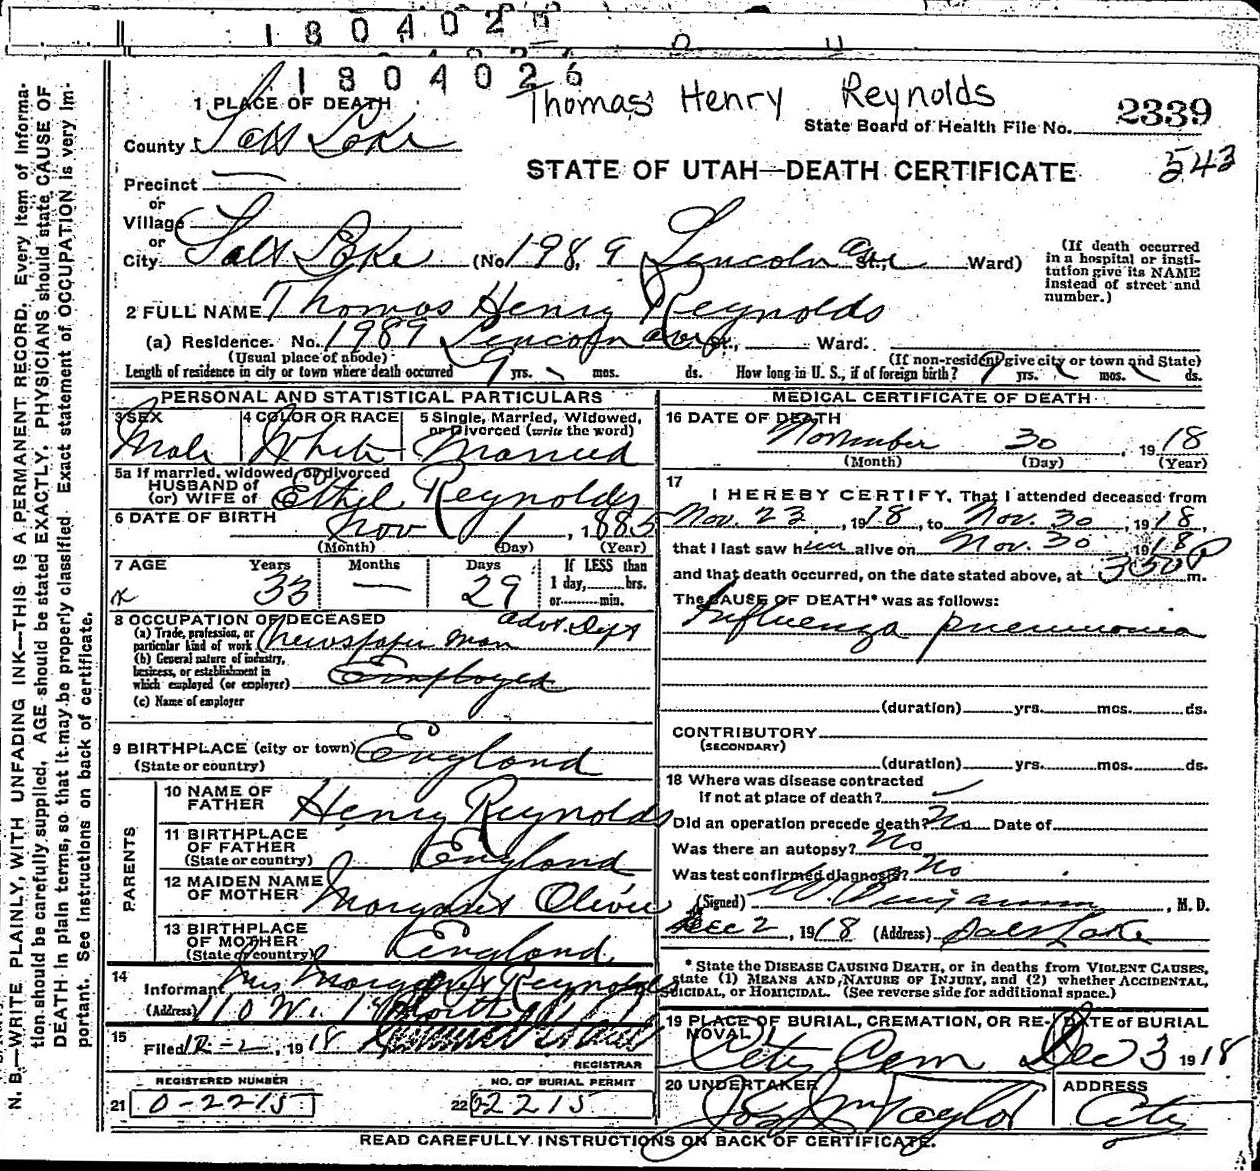 1804027
1804026
Thomas Henry Reynolds
State Board of Health File No. 2339
543
STATE OF UTAH—DEATH CERTIFICATE
1 PLACE OF DEATH
County Salt Lake
Precinct —
or
Village
or
City Salt Lake (No. 1989 Lincoln Ave St., Ward)
(If death occurred in a hospital or insti-
tution give its NAME
instead of street and
number.)
2 FULL NAME Thomas Henry Reynolds
(a) Residence. No. 1989 Lincoln Ave St., Ward.
(Usual place of abode) (If non-resident give city or town and State)
Length of residence in city or town where death occurred 9 yrs. mos. ds. How long in U. S., if of foreign birth? 9 yrs. mos. ds.
PERSONAL AND STATISTICAL PARTICULARS
3 SEX Male
4 COLOR OR RACE White
5 Single, Married, Widowed,
or Divorced (write the word)
Married
5a If married, widowed or divorced
HUSBAND of
(or) WIFE of Ethel Reynolds
6 DATE OF BIRTH Nov 1, 1885
(Month) (Day) (Year)
7 AGE Years Months Days If LESS than
33 — 29 1 day,......hrs.
or.........min.
8 OCCUPATION OF DECEASED
(a) Trade, profession, or
particular kind of work Newspaper man Advt. Dept
(b) General nature of industry,
business, or establishment in
which employed (or employer) Employed
(c) Name of employer
9 BIRTHPLACE (city or town)
(State or country) England
PARENTS
10 NAME OF
FATHER Henry Reynolds
11 BIRTHPLACE
OF FATHER
(State or country) England
12 MAIDEN NAME
OF MOTHER Margaret Oliver
13 BIRTHPLACE
OF MOTHER
(State or country) England
14
Informant Mrs Margaret Reynolds
(Address) 110 W. 14th South
15
Filed 12-2, 1918
REGISTRAR
REGISTERED NUMBER
21 0-2215
NO. OF BURIAL PERMIT
22 02215
MEDICAL CERTIFICATE OF DEATH
16 DATE OF DEATH
November 30, 1918
(Month) (Day) (Year)
17
I HEREBY CERTIFY, That I attended deceased from
Nov. 23, 1918, to Nov. 30, 1918,
that I last saw him alive on Nov. 30 1918
and that death occurred, on the date stated above, at 350 P m.
The CAUSE OF DEATH* was as follows:
Influenza pneumonia
(duration) yrs. mos. ds.
CONTRIBUTORY
(SECONDARY)
(duration) yrs. mos. ds.
18 Where was disease contracted
if not at place of death?
Did an operation precede death? No Date of
Was there an autopsy? No
Was test confirmed diagnosis? No
(Signed) W. Benjamin, M. D.
Dec 2, 1918 (Address) Salt Lake
* State the DISEASE CAUSING DEATH, or in deaths from VIOLENT CAUSES,
state (1) MEANS AND NATURE OF INJURY, and (2) whether ACCIDENTAL,
SUICIDAL, or HOMICIDAL. (See reverse side for additional space.)
19 PLACE OF BURIAL, CREMATION, OR RE-
MOVAL
City Cem
DATE of BURIAL
Dec 3 1918
20 UNDERTAKER
Jos Wm Taylor
ADDRESS
City
READ CAREFULLY INSTRUCTIONS ON BACK OF CERTIFICATE.
N. B.—WRITE PLAINLY, WITH UNFADING INK—THIS IS A PERMANENT RECORD. Every item of informa-
tion should be carefully supplied. AGE should be stated EXACTLY. PHYSICIANS should state CAUSE OF
DEATH in plain terms, so that it may be properly classified. Exact statement of OCCUPATION is very im-
portant. See instructions on back of certificate.